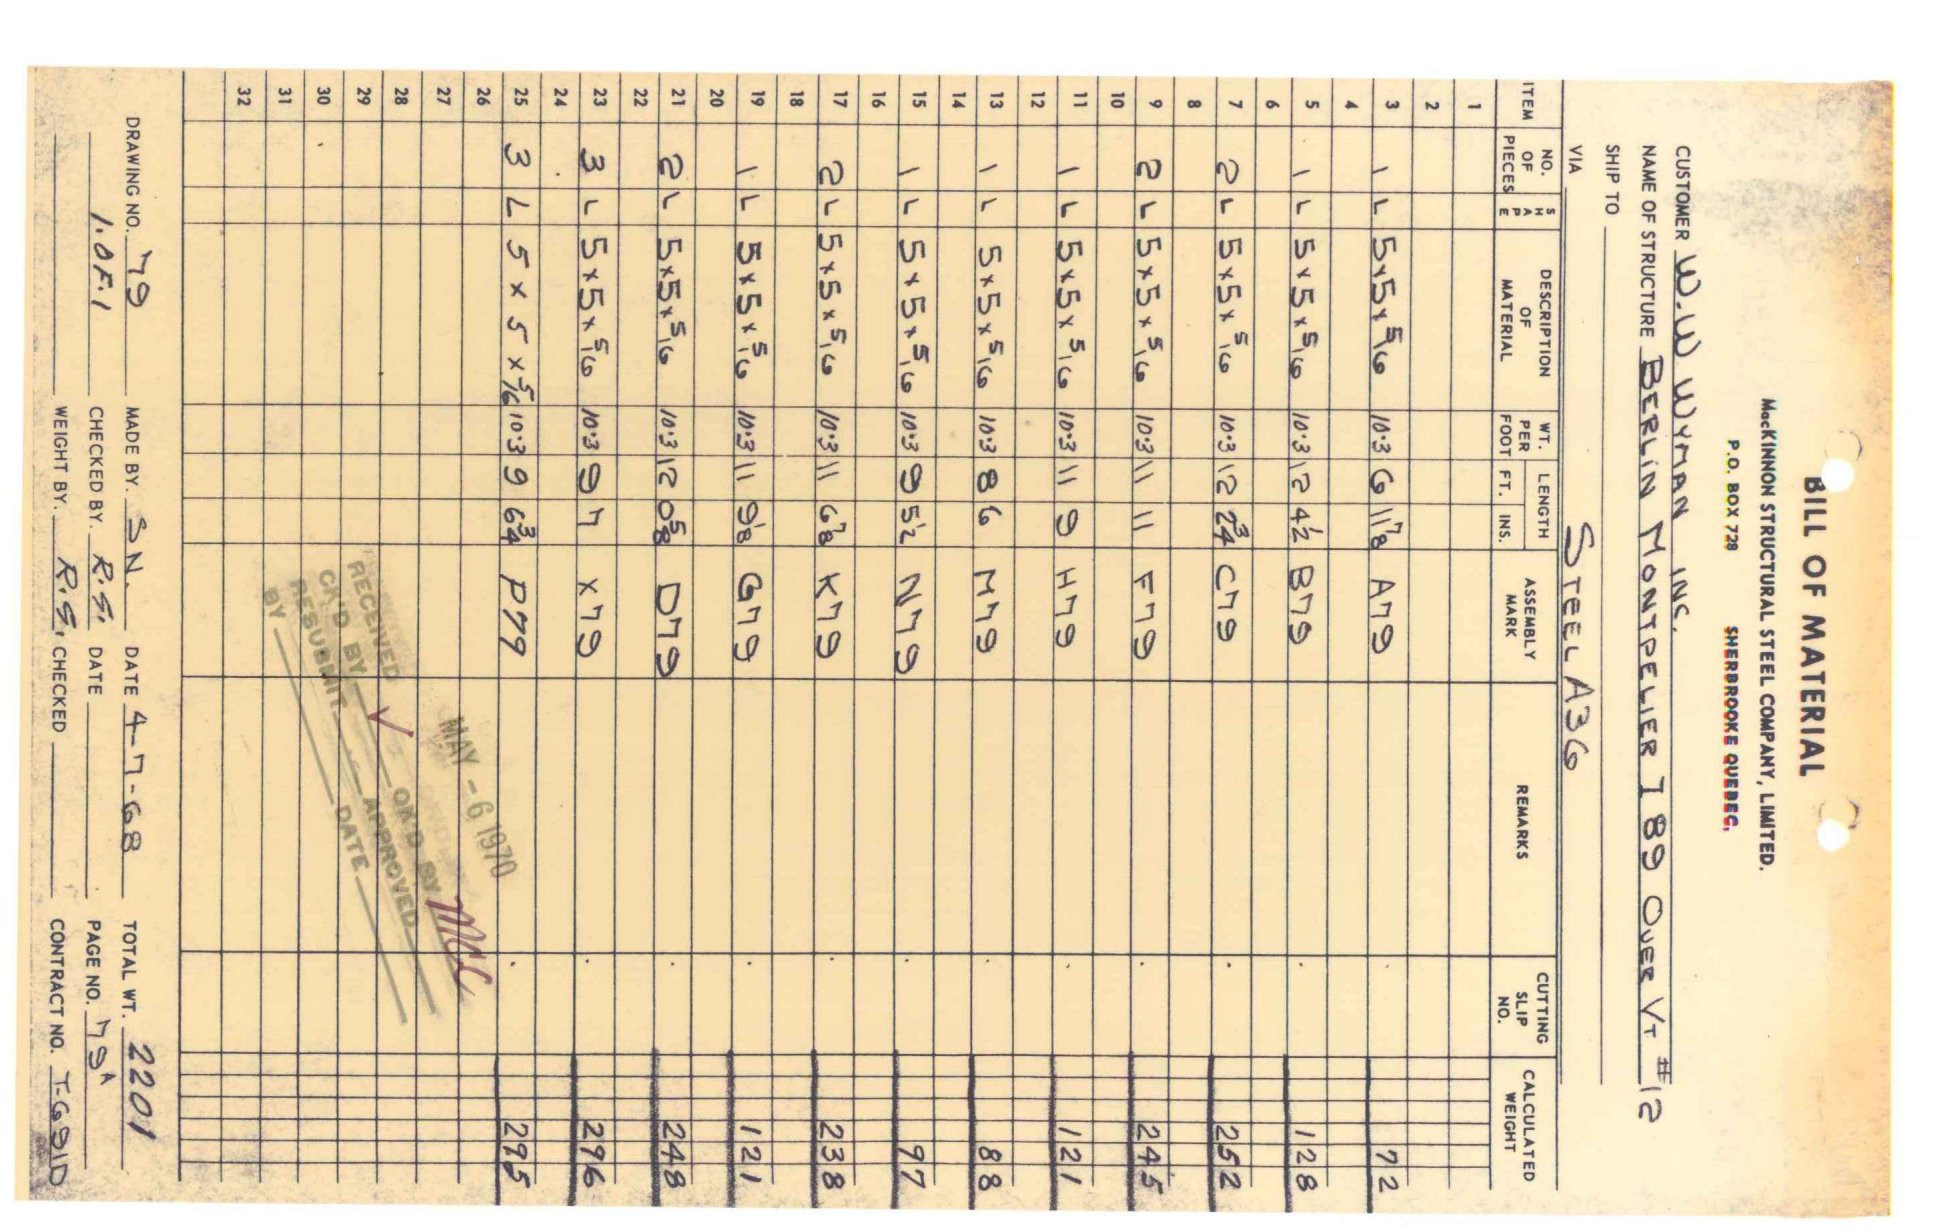 BILL OF MATERIAL
MacKINNON STRUCTURAL STEEL COMPANY, LIMITED.
P.O. BOX 728 SHERBROOKE QUEBEC.
CUSTOMER W.W WYMAN INC.
NAME OF STRUCTURE BERLIN MONTPELIER I 89 OVER VT #12
SHIP TO
VIA STEEL A36
ITEM NO. OF PIECES SHAPE DESCRIPTION OF MATERIAL WT. PER FOOT LENGTH FT. INS. ASSEMBLY MARK REMARKS CUTTING SLIP NO. CALCULATED WEIGHT
1
2
3 1 L 5x5x5/16 10.3 6 11 7/8 A79 72
4
5 1 L 5x5x5/16 10.3 12 4 1/2 B79 128
6
7 2 L 5x5x5/16 10.3 12 2 3/4 C79 252
8
9 2 L 5x5x5/16 10.3 11 11 F79 245
10
11 1 L 5x5x5/16 10.3 11 9 H79 121
12
13 1 L 5x5x5/16 10.3 8 6 M79 88
14
15 1 L 5x5x5/16 10.3 9 5 1/2 N79 97
16
17 2 L 5x5x5/16 10.3 11 6 7/8 K79 238
18
19 1 L 5x5x5/16 10.3 11 9 1/8 G79 121
20
21 2 L 5x5x5/16 10.3 12 0 5/8 D79 248
22
23 3 L 5x5x5/16 10.3 9 7 X79 296
24
25 3 L 5x5x5/16 10.3 9 6 3/4 P79 295
26
27
28
29
30
31
32
MAY - 6 1970
RECEIVED
CK'D BY ✓ OK'D BY MCL
RESUBMIT APPROVED
BY DATE
DRAWING NO. 79 MADE BY. SN. DATE 4-7-68 TOTAL WT. 2201
1.OF.1 CHECKED BY. R.S. DATE PAGE NO. 79A
WEIGHT BY. R.S. CHECKED CONTRACT NO. T-6910